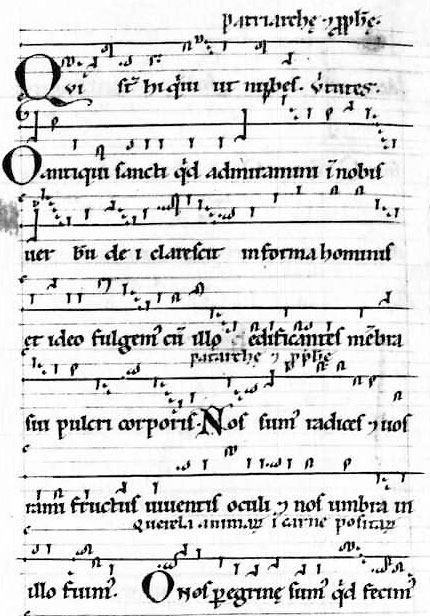 patriarchę ⁊ ꝓphę.
Qvi st̄ hi q̇i ut nubes. v̄tutes.
O antiqui sancti q̇d admiramini i̅ nobis
uer bū dei clarescit in forma hominis
et ideo fulgem' cū illo edificantes mēbra
patarchę ⁊ ꝓphę
sui pulcri corporis. Nos sum' radices ⁊ uos
rami fructus uiuentis oculi ⁊ nos umbra in
Querela animaꝝ i carne positaꝝ
illo fuim'. O Nos peregrinę sum' q̇d fecim'